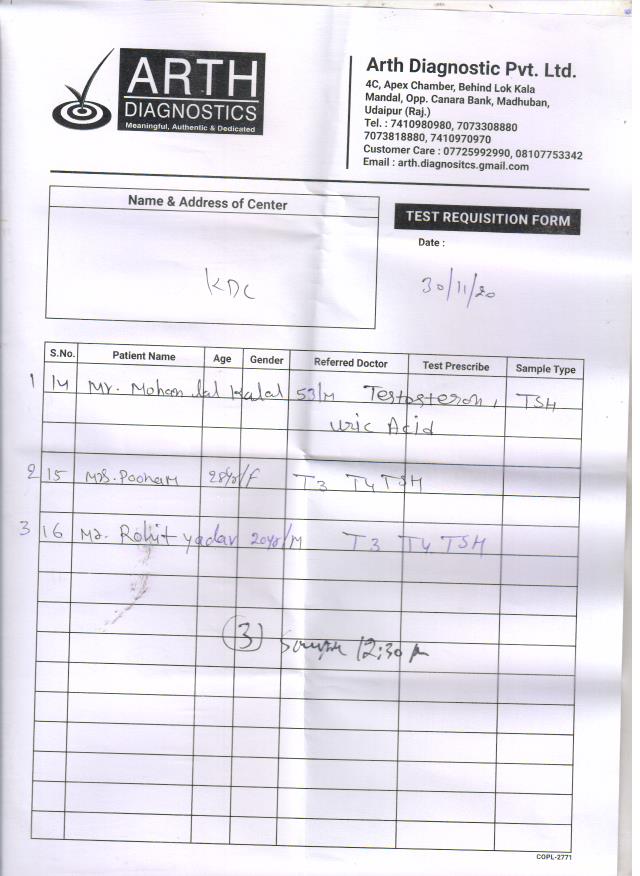 ARTH
DIAGNOSTICS
Meaningful, Authentic & Dedicated
Arth Diagnostic Pvt. Ltd.
4C, Apex Chamber, Behind Lok Kala
Mandal, Opp. Canara Bank, Madhuban,
Udaipur (Raj.)
Tel. : 7410980980, 7073308880
7073818880, 7410970970
Customer Care : 07725992990, 08107753342
Email : arth.diagnositcs.gmail.com
Name & Address of Center
KDC
TEST REQUISITION FORM
Date :
30/11/20
S.No. Patient Name Age Gender Referred Doctor Test Prescribe Sample Type
1 14 Mr. Mohan lal Kalal 53/M Testosteron, TSH
Uric Acid
2 15 Mrs. Poonam 28yr/F T3 T4 TSH
3 16 Mr. Rohit yadav 20yr/M T3 T4 TSH
3 12:30 pm
COPL-2771